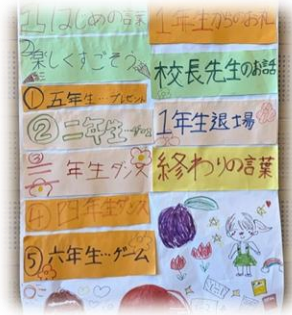 はじめの言葉
楽しくすごそう
① 五年生…プレゼント
② 二年生…
③ 三年生ダンス
④ 四年生ダンス
⑤ 六年生…ゲーム
1年生からのお礼
校長先生のお話
1年生退場
終わりの言葉